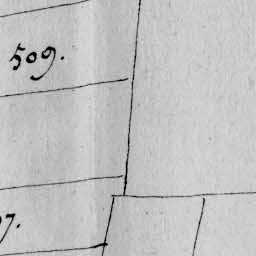 509.
7.